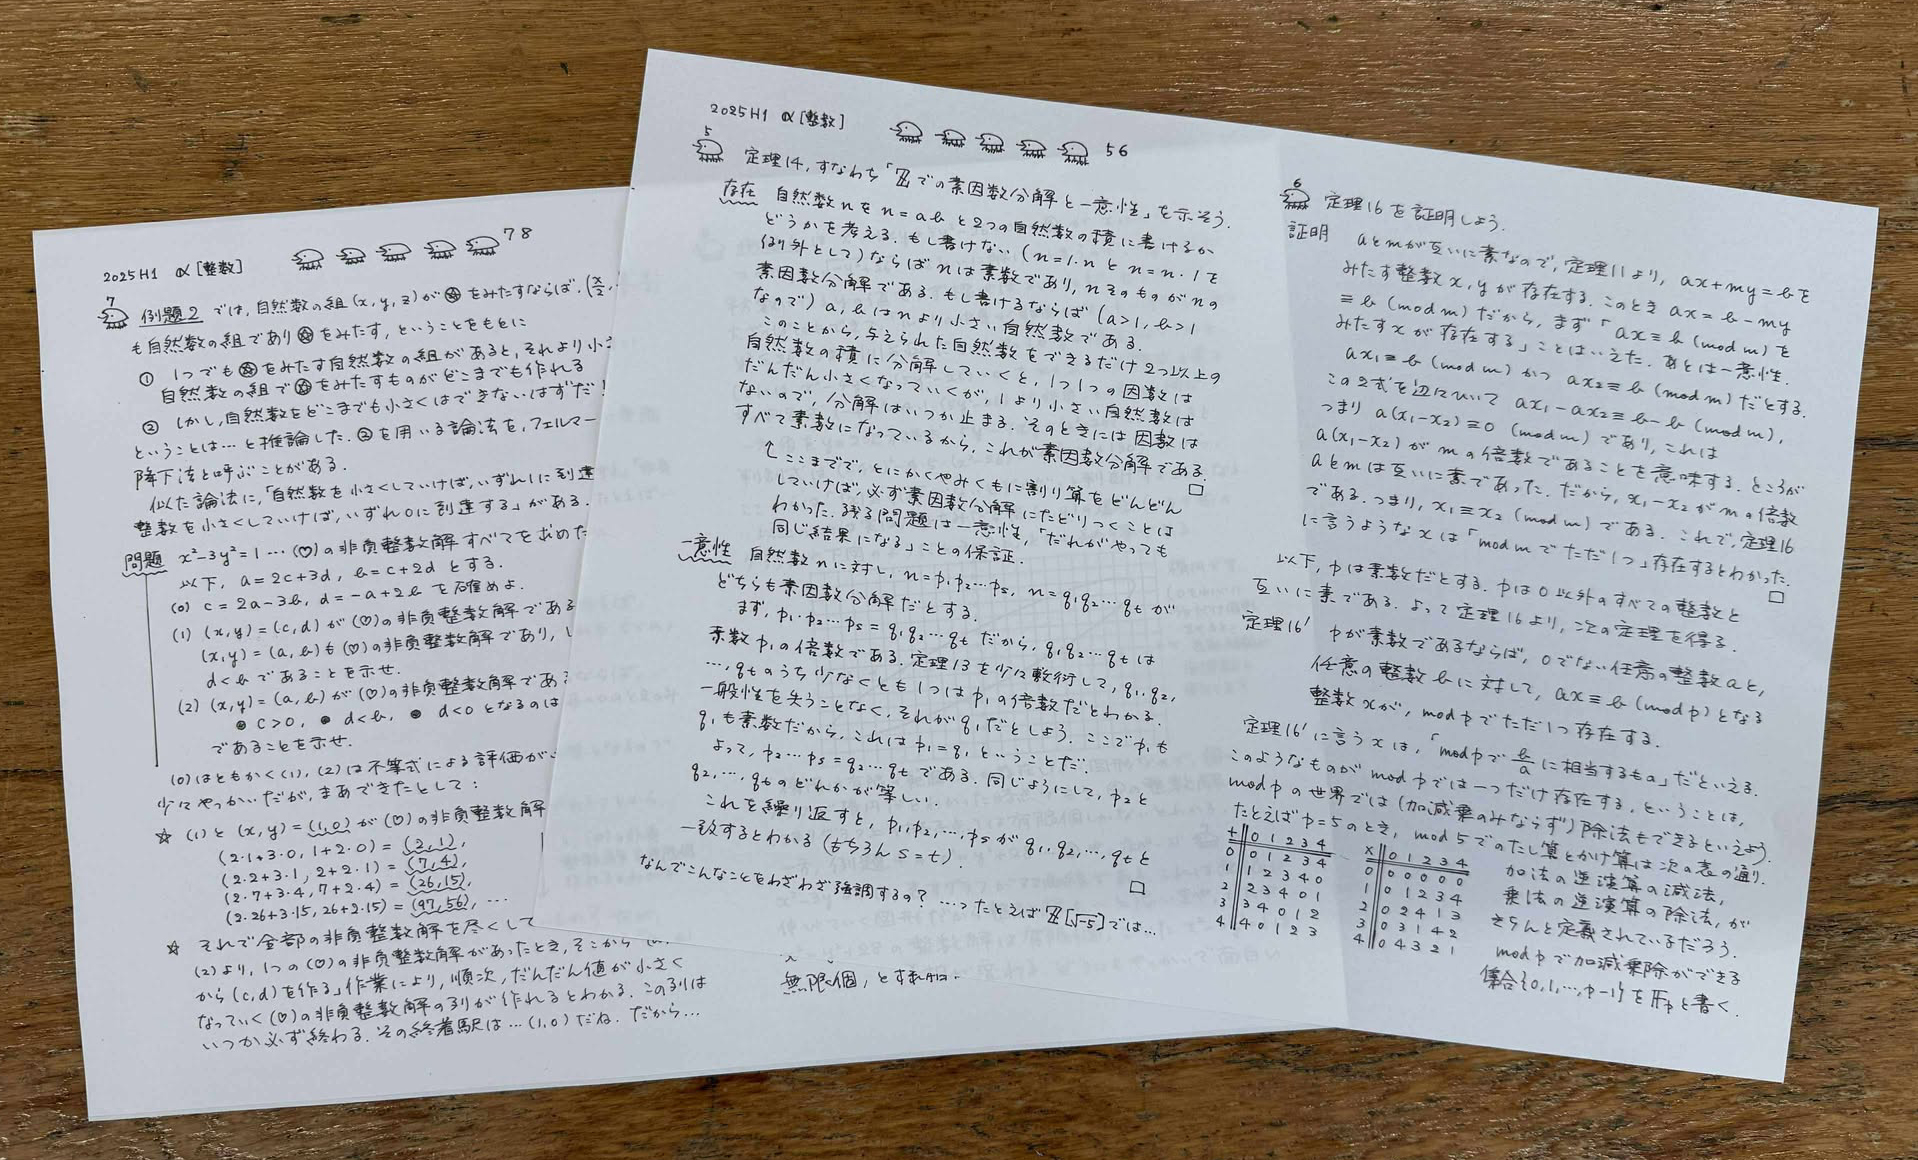 2025H1 α[整数]
78
7
例題2 では,自然数の組(x,y,z)が☆をみたすならば,(x/2,
も自然数の組であり☆をみたす,ということをもとに
① 1つでも☆をみたす自然数の組があると,それより小さ
自然数の組で☆をみたすものがどこまでも作れる
② しかし,自然数をどこまでも小さくはできないはずだ!
ということは…と推論した.②を用いる論法を,フェルマー
降下法と呼ぶことがある.
似た論法に,「自然数を小さくしていけば,いずれ1に到達
整数を小さくしていけば,いずれ0に到達する」がある.
問題 x²-3y²=1 …(♡)の非負整数解すべてを求めた
以下, a=2c+3d, b=c+2d とする.
(0) c=2a-3b, d=-a+2b を確めよ.
(1) (x,y)=(c,d)が(♡)の非負整数解である
(x,y)=(a,b)も(♡)の非負整数解であり,
d<b であることを示せ.
(2) (x,y)=(a,b)が(♡)の非負整数解である
● c>0, ● d<b, ● d<0 となるのは
であることを示せ.
(0)はともかく(1),(2)は不等式による評価が
少々やっかいだが,まあできたとして:
☆ (1)と(x,y)=(1,0)が(♡)の非負整数解
(2·1+3·0, 1+2·0)=(2,1),
(2·2+3·1, 2+2·1)=(7,4),
(2·7+3·4, 7+2·4)=(26,15),
(2·26+3·15, 26+2·15)=(97,56), …
☆ それで全部の非負整数解を尽くして
(2)より,1つの(♡)の非負整数解があったとき,そこから
から(c,d)を作る」作業により,順次,だんだん値が小さく
なっていく(♡)の非負整数解の列が作れるとわかる.この列は
いつか必ず終わる.その終着駅は…(1,0)だね.だから…
無限個,と
2025H1 α[整数]
56
5
定理14,すなわち「ℤでの素因数分解と一意性」を示そう.
存在 自然数nをn=abと2つの自然数の積に書けるか
どうかを考える.もし書けない(n=1·nとn=n·1を
例外として)ならばnは素数であり,nそのものがnの
素因数分解である.もし書けるならば(a>1,b>1
なので)a,bはnより小さい自然数である.
このことから,与えられた自然数をできるだけ2つ以上の
自然数の積に分解していくと,1つ1つの因数は
だんだん小さくなっていくが,1より小さい自然数は
ないので,分解はいつか止まる.そのときには因数は
すべて素数になっているから,これが素因数分解である.
□
↑ここまでで,とにかくやみくもに割り算をどんどん
していけば,必ず素因数分解にたどりつくことは
わかった.残る問題は一意性,「だれがやっても
同じ結果になる」ことの保証.
一意性 自然数nに対し,n=p₁p₂…ps, n=q₁q₂…qtが
どちらも素因数分解だとする.
まず,p₁·p₂…ps=q₁q₂…qtだから,q₁q₂…qtは
素数p₁の倍数である.定理13を少々敷衍して,q₁,q₂,
…,qtのうち少なくとも1つはp₁の倍数だとわかる.
一般性を失うことなく,それがq₁だとしよう.ここでp₁も
q₁も素数だから,これはp₁=q₁ということだ.
よって,p₂…ps=q₂…qtである.同じようにして,p₂と
q₂,…,qtのどれかが等しい.
これを繰り返すと,p₁,p₂,…,psがq₁,q₂,…,qtと
一致するとわかる(もちろんs=t).
□
なんでこんなことをわざわざ強調するの? …たとえばℤ[√-5]では…
6
定理16を証明しよう.
証明 aとmが互いに素なので,定理11より,ax+my=bを
みたす整数x,yが存在する.このときax=b-my
≡b (mod m)だから,まず「ax≡b (mod m)を
みたすxが存在する」ことはいえた.あとは一意性.
ax₁≡b (mod m)かつax₂≡b (mod m)だとする.
この2式を辺々ひいてax₁-ax₂≡b-b (mod m),
つまりa(x₁-x₂)≡0 (mod m)であり,これは
a(x₁-x₂)がmの倍数であることを意味する.ところが
aとmは互いに素であった.だから,x₁-x₂がmの倍数
である.つまり,x₁≡x₂ (mod m)である.これで,定理16
に言うようなxは「mod mでただ1つ」存在するとわかった.
□
以下,pは素数だとする.pは0以外のすべての整数と
互いに素である.よって定理16より,次の定理を得る.
定理16′ pが素数であるならば,0でない任意の整数aと,
任意の整数bに対して,ax≡b (mod p)となる
整数xが,mod pでただ1つ存在する.
定理16′に言うxは,「mod pでb/aに相当するもの」だといえる.
このようなものがmod pでは一つだけ存在する,ということは,
mod pの世界では(加減乗のみならず)除法もできるといえよう.
たとえばp=5のとき,mod 5でのたし算とかけ算は次の表の通り.
+ 0 1 2 3 4
0 0 1 2 3 4
1 1 2 3 4 0
2 2 3 4 0 1
3 3 4 0 1 2
4 4 0 1 2 3
× 0 1 2 3 4
0 0 0 0 0 0
1 0 1 2 3 4
2 0 2 4 1 3
3 0 3 1 4 2
4 0 4 3 2 1
加法の逆演算の減法,
乗法の逆演算の除法,が
きちんと定義されているだろう.
mod pで加減乗除ができる
集合{0,1,…,p-1}を𝔽pと書く.